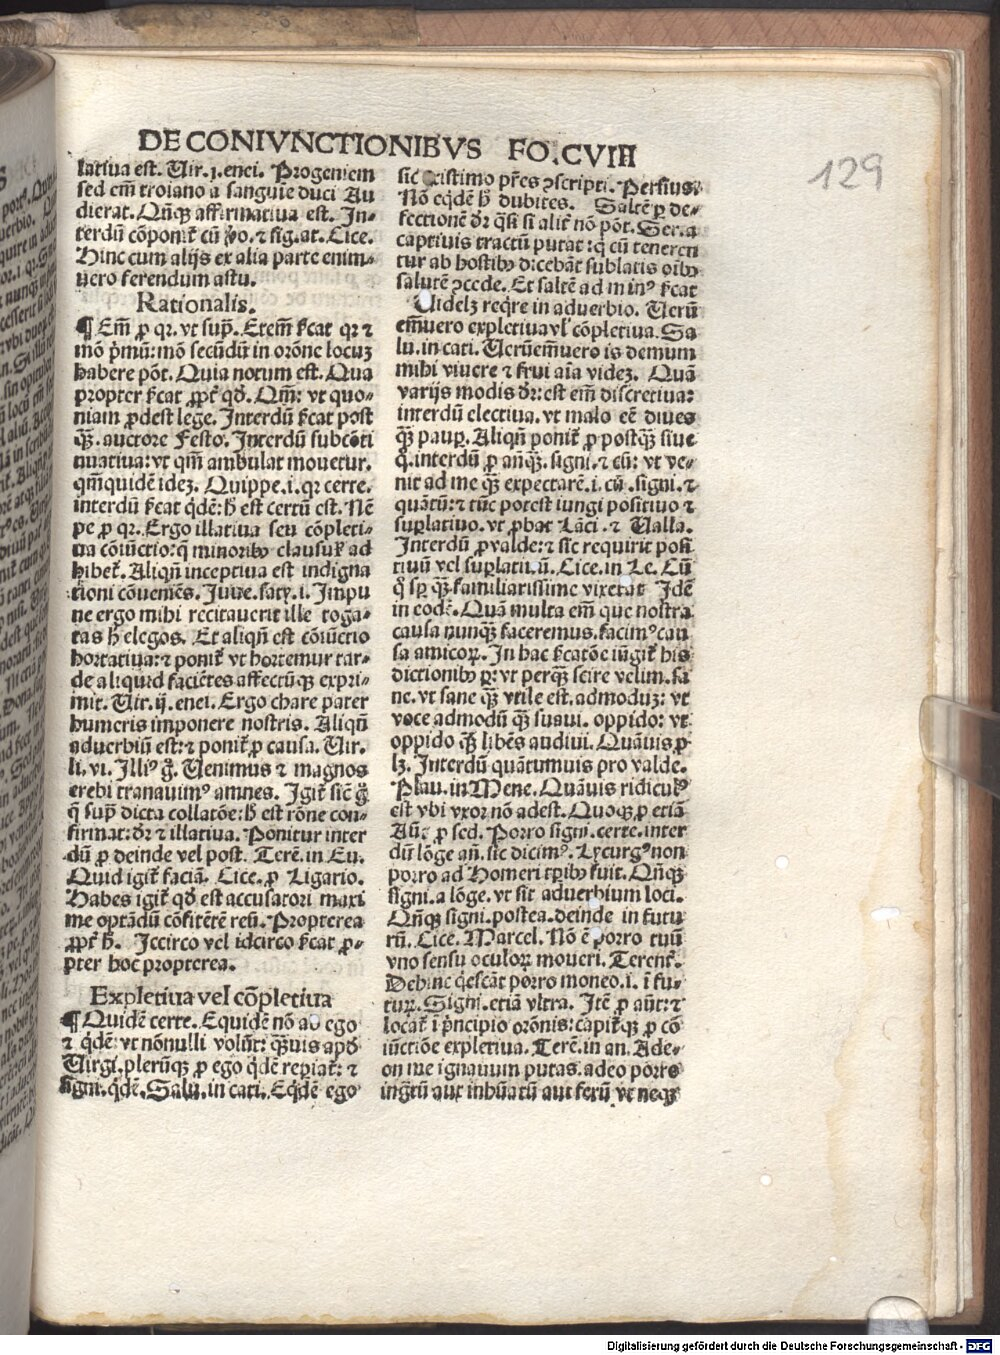 DE CONIVNCTIONIBVS FO. CVIII
129
latiua est. Uir. 1. enei. Progeniem
sed em̄ troiano a sanguīe duci Au
dierat. Qn̄qꝫ affirmatiua est. In-
terdū cōponit᷑ cū ꝟo. ⁊ sig. at. Cice.
Hinc cum alijs ex alia parte enim-
uero ferendum astu.
Rationalis.
¶ Em̄ ꝓ qꝛ. vt sup̄. Etem̄ ſcat qꝛ ⁊
mō pͥmū: mō secūdū in orōne locuꝫ
habere pōt. Quia notum est. Qua
propter ſcat ꝓpt᷑ qd̄. Qm̄: vt quo-
niam ꝓdest lege. Interdū ſcat post
qꝫ̄. auctore Festo. Interdū subcōti
nuatiua: vt qm̄ ambulat mouetur.
qm̄quidē ideꝫ. Quippe .i. qꝛ certe.
interdū ſcat qͥdē: hͦ est certū est. Nē
pe ꝓ qꝛ. Ergo illatiua seu cōpleti-
ua cōiūctio: q̄ minoribꝰ clausul᷑ ad
hibet᷑. Aliqn̄ inceptiua est indigna
tioni cōueniēs. Juue. saty. i. Impu
ne ergo mihi recitauerit ille toga-
tas hͥ elegos. Et aliqn̄ est cōiūctio
hortatiua: ⁊ ponit᷑ vt hortemur tar-
de aliquid faciētes affectūqꝫ expri-
mit. Uir. ij. enei. Ergo chare pater
humeris imponere nostris. Aliqn̄
aduerbiū est: ⁊ ponit᷑ ꝓ causa. Uir.
li. vi. Illiꝰ gͦ. Uenimus ⁊ magnos
erebi tranauimꝰ amnes. Igit᷑ sic̄ gͦ
q̄ sup̄ dicta collatōe: hͦ est rōne con-
firmat: dr̄ ⁊ illatiua. Ponitur inter
dū ꝓ deinde vel post. Terē. in Eu.
Quid igit᷑ faciā. Cice. ꝓ Ligario.
Habes igit᷑ qd̄ est accusatori maxi
me optādū cōfitētē reū. Propterea
ꝓpt᷑ hͦ. Iccirco vel idcirco ſcat ꝓ-
pter hoc propterea.
Expletiua vel cōpletiua
¶ Quidē certe. Equidē nō ab ego
⁊ qͥdē: vt nōnulli volūt: qꝫ̄uis apd̄
Uirgi. plerūqꝫ ꝓ ego qͥdē repiat᷑: ⁊
signi. qͥdē. Salu. in cati. Eqͥdē ego
sic existimo pr̄es ꝯscripti. Persius.
Nō eqͥdē hͦ dubites. Saltē ꝑ de-
fectionē dr̄ qͣsi si alit᷑ nō pōt. Ser. a
captiuis tractū putat: qͥ cū teneren
tur ab hostibꝰ dicebāt sublatis oībꝰ
salutē ꝯcede. Et saltē ad minꝰ ſcat
Uidelꝫ reqͥre in aduerbio. Uerū
em̄uero expletiua vl̓ cōpletiua. Sa
lu. in cati. Uerūem̄uero is demum
mihi viuere ⁊ frui aīa videꝫ. Quā
varijs modis dr̄: est em̄ discretiua:
interdū electiua. vt malo eē diues
qꝫ̄ paup̲. Aliqn̄ ponit᷑ ꝓ postqꝫ̄ siue
qͦ. interdū ꝓ an̄qꝫ̄. signi. ⁊ cū: vt ve-
nit ad me qꝫ̄ expectarē .i. cū. signi. ⁊
quātū: ⁊ tūc potest iungi positiuo ⁊
suꝑlatiuo. vt ꝓbat Lāci. ⁊ Ualla.
Interdū ꝓ valde: ⁊ sic requirit posi
tiuū vel suꝑlatiuū. Cice. in Le. Cū
qͦ sꝑ qꝫ̄ familiarissime vixerat Idē
in eodē. Quā multa em̄ que nostra
causa nunqꝫ̄ faceremus. facimꝰ cau
sa amicoꝝ. In hac ſcatōe iūgit᷑ his
dictionibꝰ ꝑ: vt perqꝫ̄ scire velim. sa
ne. vt sane qꝫ̄ vtile est. admoduꝫ: vt
voce admodū qꝫ̄ suaui. oppido: vt
oppido qꝫ̄ libēs audiui. Quāuis ꝓ
lꝫ. Interdū quātumuis pro valde.
Plau. in Mene. Quāuis ridicul᷑
est vbi vxor nō adest. Quoqꝫ ꝓ etiā
Aūt ꝓ sed. Porro signi. certe. inter
dū lōge an̄. sic dicimꝰ. Lycurgꝰ non
porro ad Homeri tꝑibꝰ fuit. Qn̄qꝫ
signi. a lōge. vt sit aduerbium loci.
Qn̄qꝫ signi. postea. deinde in futu
rū. Cice. Marcel. Nō ē porro tuū
vno sensu oculoꝝ moueri. Terent᷑.
Dehinc qͥescāt porro moneo .i. ī fu-
tuꝝ. Signi. etiā vltra. Itē ꝓ aūt: ⁊
locat᷑ ī pͥncipio orōnis: capit᷑qꝫ ꝓ cō
iūctiōe expletiua. Terē. in an. Ade-
on me ignauum putas. adeo porro
ingͣtū aut inhūanū aut ferū vt neqꝫ
Digitalisierung gefördert durch die Deutsche Forschungsgemeinschaft - DFG